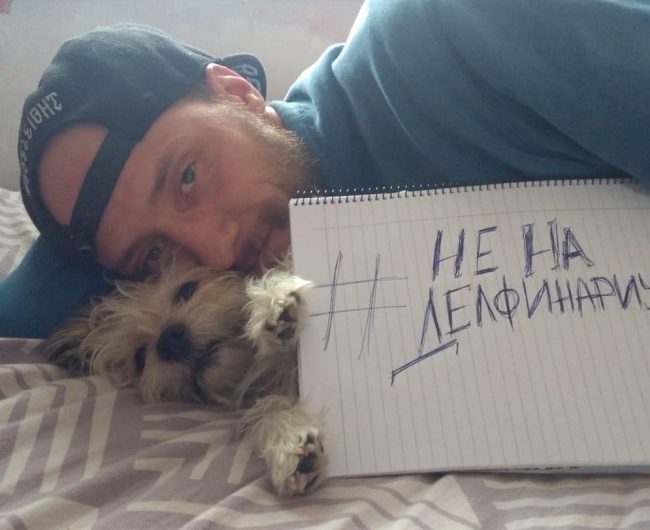 # НЕ НА
ДЕЛФИНАРИУ